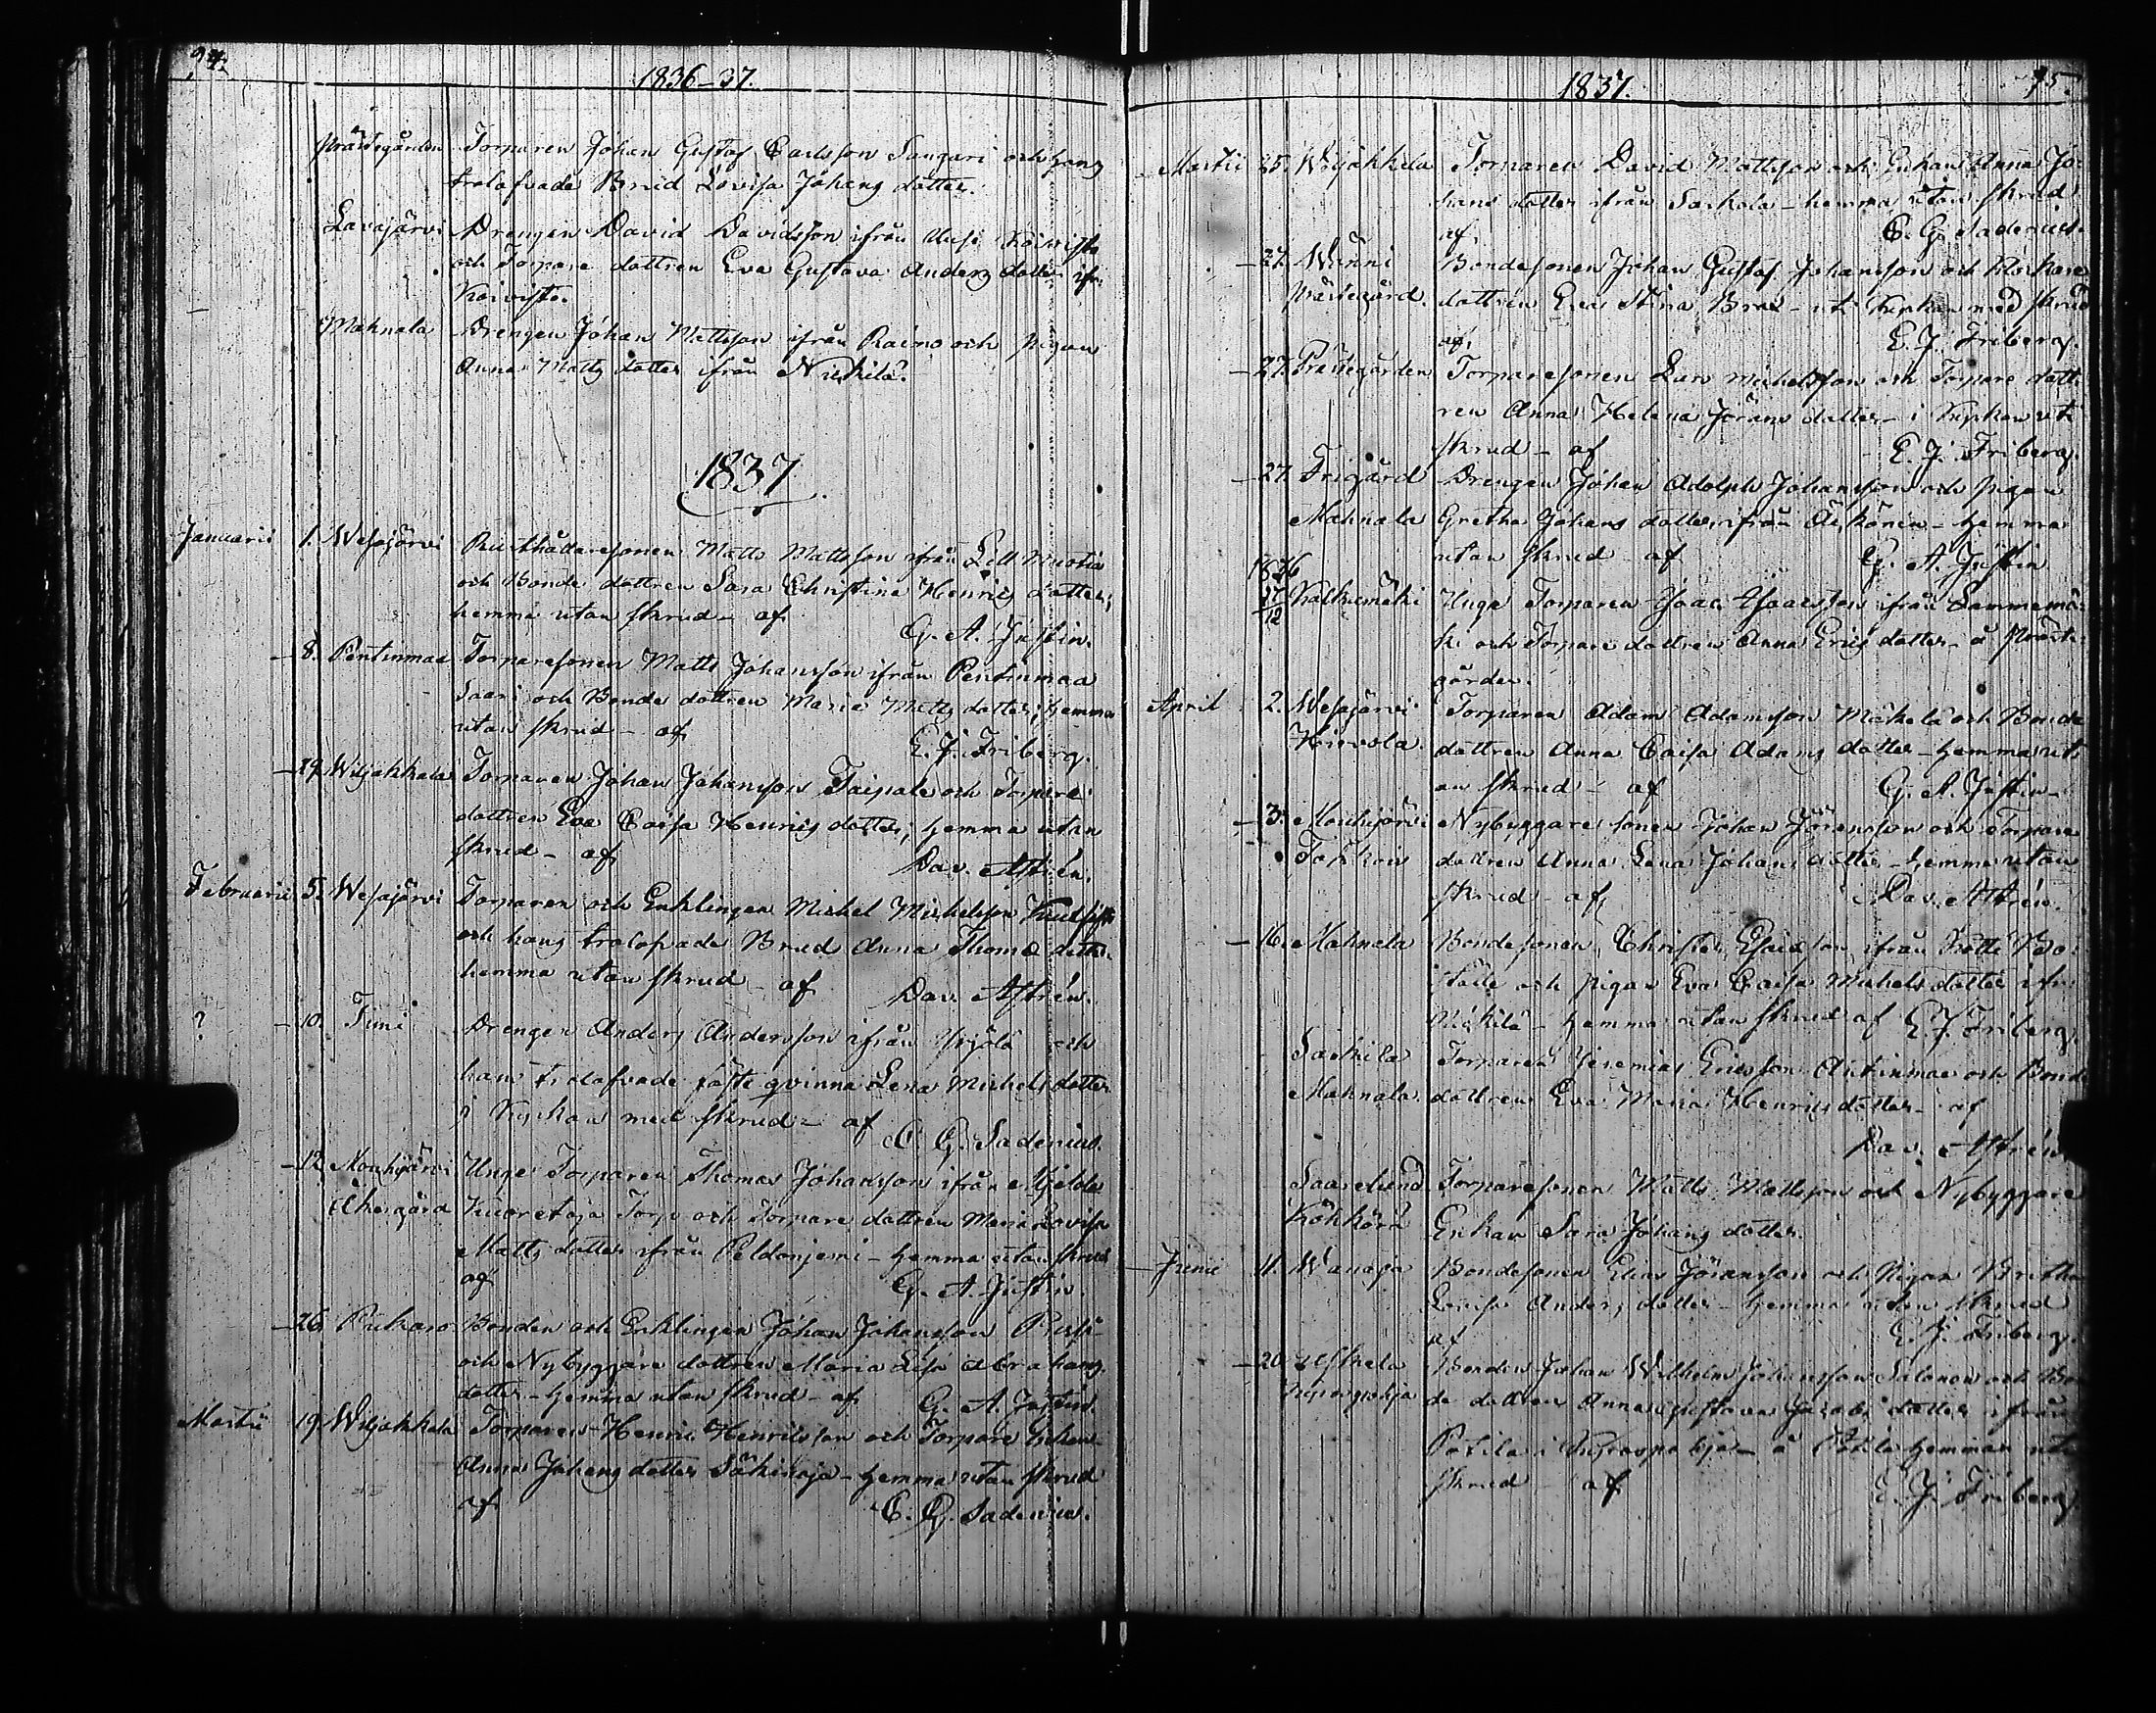 94.
1836-37.
Prästegården Torparen Johan Gustaf Carlsson Sangari och hans
trolofvade Brud Lovisa Johans dotter.
Lavajärvi Drengen David Davidsson ifrån Uusi Koivisto
och Torpare dottren Eva Gustava Anders dotter ifr.
Koivisto.
Mahnala Drengen Johan Mattsson ifrån Raimo och Pigan
Anna Matts dotter ifrån
1837.
Januarii 1. Wesajärvi Rusthållaresonen Matts Mattsson ifrån Lill
och Bonde dottren Sara Christina Henrics dotter,
hemma utan skrud - af G. A. Justin.
- 8. Pentinmaa Torparesonen Matts Johansson ifrån Pentinmaa
Saari och Bonde dottren Maria Matts dotter; hemma
utan skrud - af E. J. Friberg.
- 29. Wiljakkala Torparen Johan Johansson Taipale och Torpare
dottren Eva Caisa Henrics dotter; hemma utan
skrud - af Dav. Astrén.
Februarii 5. Wesajärvi Torparen och Enklingen Michel Michelsson
och hans trolofvade Brud Anna Thomæ dotter
hemma utan skrud - af Dav. Astrén.
? - 10. Timi Drengen Anders Andersson ifrån Yrjölä och
hans trolofvade fäste qvinna Lena Michels dotter
i Kyrkan med skrud - af C. G. Sadenius.
- 12. Mouhijärvi Unge Torparen Thomas Johansson ifrån
Torp och Torpare dottren Maria Lovisa
Matts dotter ifrån Peldoniemi - hemma utan skrud
af G. A. Justin.
- 26. Pukaro Bonden och Enklingen Johan Johansson
och Nybyggare dottren Maria Lisa Abrahams
dotter - hemma utan skrud - af G. A. Justin.
Martii 19. Wiljakkala Torparen Henric Henricsson och Torpare Enkan
Anna Johans dotter - hemma utan skrud
af C. G. Sadenius.
1837.
95.
Martii 25. Wiljakkala Torparen David Mattsson och Enkan Anna Jo-
hans dotter ifrån - hemma utan skrud
af C. G. Sadenius.
- 27. Wänni Bondesonen Johan Gustaf Johansson och Klockare
Prästegård. dottren Eva Stina - uti Kyrkan med skrud
af E. J. Friberg.
- 27. Prästegården Torparesonen Lars Michelsson och Torpare dott-
ren Anna Helena Jörans dotter - i Kyrkan uti
skrud - af E. J. Friberg.
- 27. Frigård Drengen Johan Adolph Johansson och Pigan
Mahnala Gretha Johans dotter ifrån - hemma
utan skrud af G. A. Justin
1836
Kalkunmäki Unge Torparen Isaac Isaacsson ifrån
och Torpare dottren Anna Erics dotter - å Präste-
gården.
April 2. Wesajärvi Torparen Adam Adamsson Mäkelä och Bonde
dottren Anna Caisa Adams dotter - hemma ut-
an skrud - af G. A. Justin.
- 3. Mouhijärvi Nybyggare sonen Johan Jöransson och Torpare
dottren Anna Lena Johans dotter - hemma utan
skrud - af Dav. Astrén.
- 16. Mahnala Bondesonen Christer Esaiasson ifrån Bo-
ställe och Pigan Eva Caisa Michels dotter ifr.
- hemma utan skrud af E. J. Friberg.
Torparen Jeremias Ericsson Antinmaa och Bonde
Mahnala dottren Eva Maria Henrics dotter - af
Dav. Astrén
Torparesonen Matts Mattsson och Nybyggare
Enkan Sara Johans dotter.
- Junii 11. Wanaja Bondesonen Elias Jöransson och Pigan Britha
Lovisa Anders dotter - hemma utan skrud
af E. J. Friberg.
- 20. Bonden Johan Wilhelm Johansson Salonen och Bon-
de dottren Anna Gustava Jacobs dotter ifrån
- å hemman utan
skrud - af E. J. Friberg.